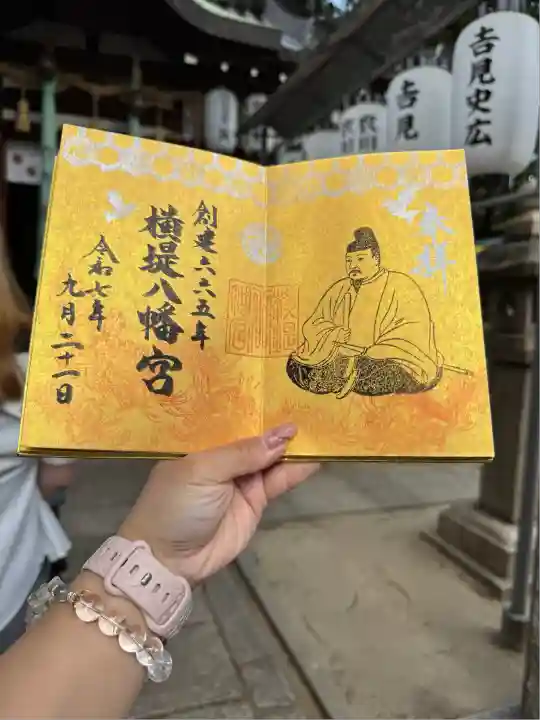 奉拝
創建六六五年
横堤八幡宮
令和七年
九月二十一日
吉見史広
吉見